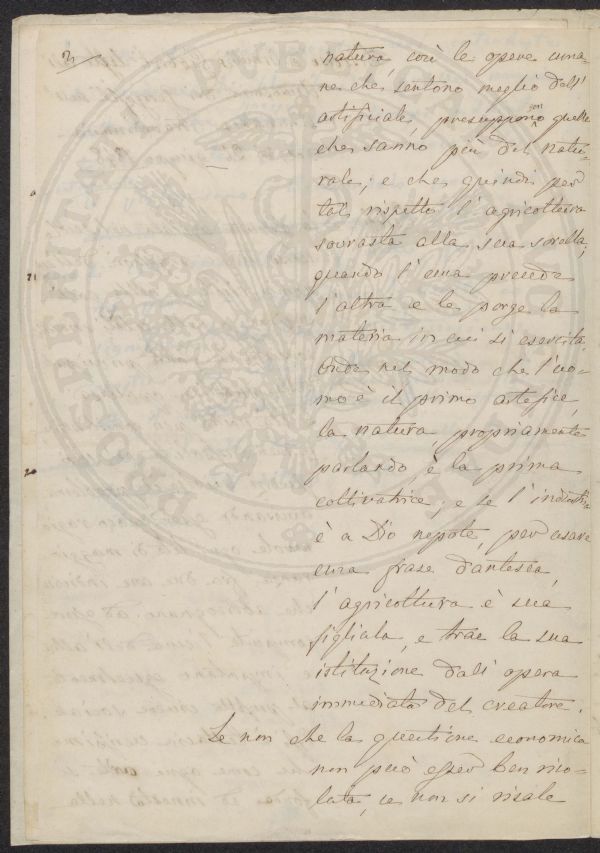 2
natura, così le opere uma-
ne che sentono meglio dell'
artificiale, presuppongono quelle
che sanno più del natu-
rale; e che quindi per
tal rispetto l'agricoltura
sovrasta alla sua sorella;
quando l'una precede
l'altra e le porge la
materia in cui si esercita.
Onde nel modo che l'uo-
mo è il primo artefice,
la natura propriamente
parlando è la prima
coltivatrice; e se l'industria
è a Dio nepote, per usare
una frase dantesca,
l'agricoltura è sua
figliola, e trae la sua
istituzione dall'opera
immediata del creatore.
Se non che la quistione economica
non può esser ben riso-
luta, se non si risale